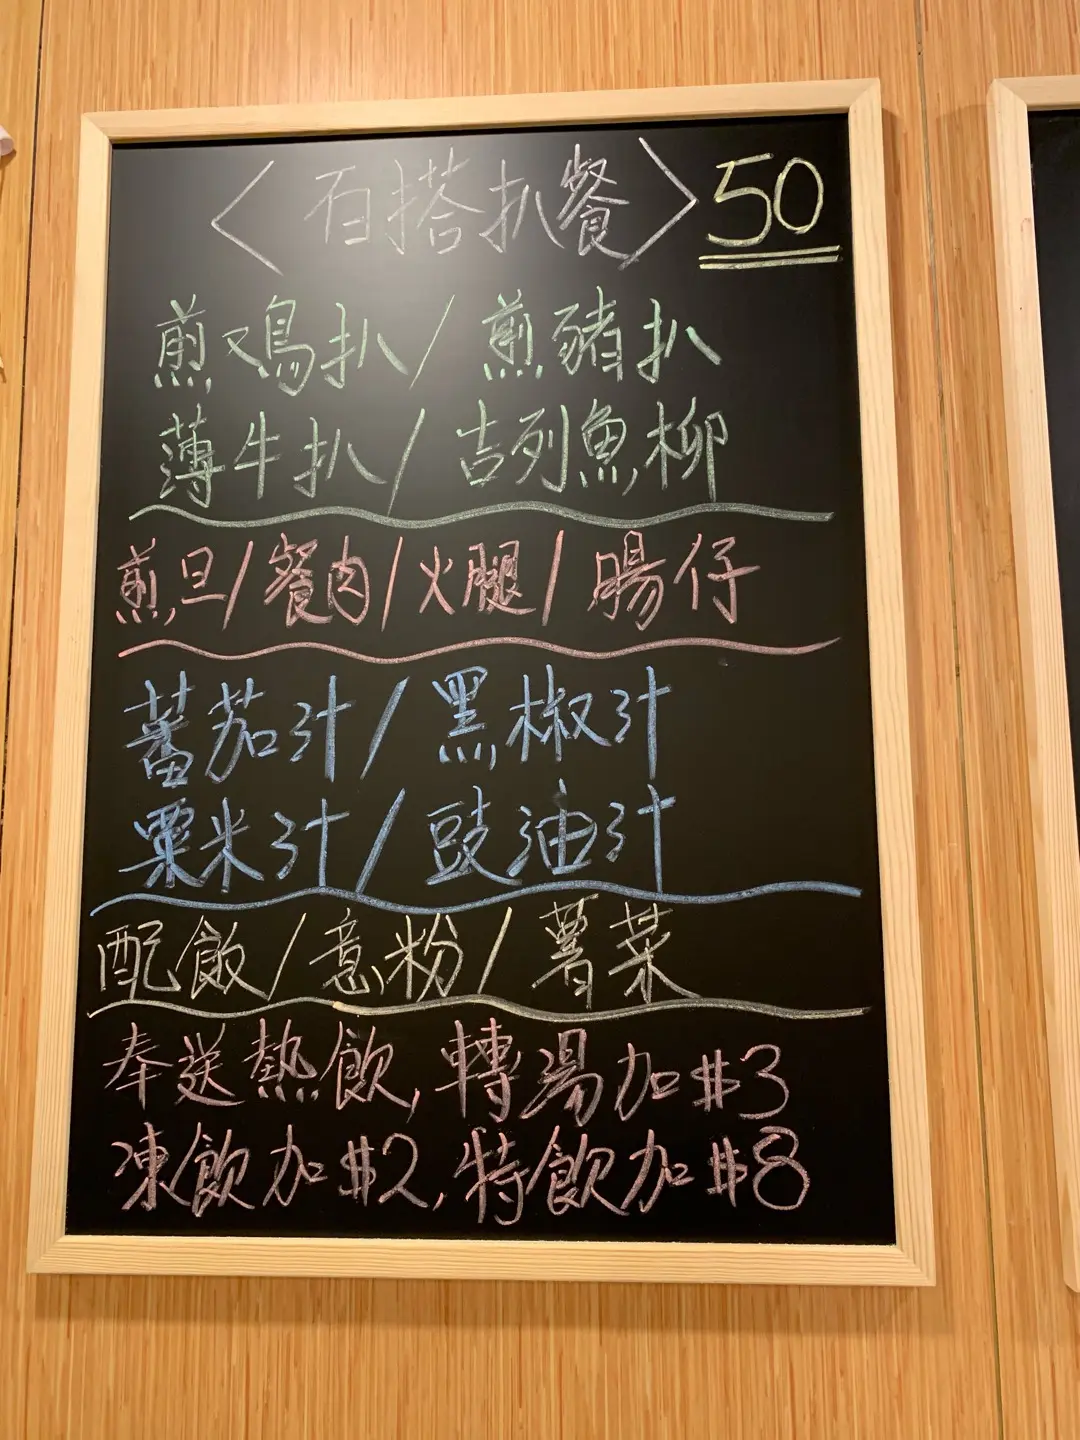 〈百搭扒餐〉50
煎又鳥扒/煎豬扒
薄牛扒/吉列魚柳
煎旦/餐肉/火腿/腸仔
蕃茄汁/黑椒汁
粟米汁/豉油汁
配飯/意粉/薯菜
奉送熱飲,轉湯加$3
凍飲加$2,特飲加$8